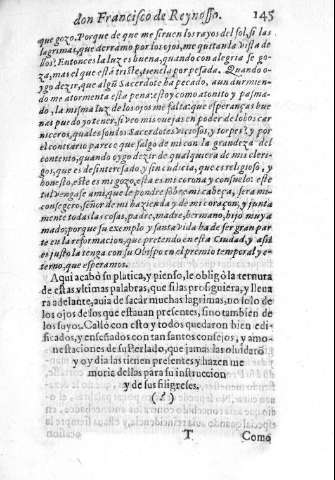 don Francisco de Reynosso. 145
que gozo. Porque de que me siruen los rayos del sol, si las
lagrimas, que derramo por los ojos, me quitan la vista de
llos? Entonces la luz es buena, quando con alegria se go-
za, mas el que està triste, tienela por pesada. Quando o-
ygo dezir, que algũ Sacerdote ha pecado, aun durmien-
do me atormenta esta pena: estoy como atonito y pasma-
do, la misma luz de los ojos me falta: que esperanças bue-
nes puedo yo tener, si veo mis ouejas en poder de lobos car
niceros, quales son los Sacerdotes viciosos, y torpes? y por
el contrario parece que salgo de mi con la grandeza del
contento, quando oygo dezir de qualquiera de mis cleri-
gos, que es desinteresado y sin cudicia, que es religioso, y
honesto, este es mi gozo, esta es mi corona y consuelo: este
tal vengase ami, que le pondre sobre mi cabeça, sera mi
consegero, señor de mi hazienda y de mi coraçon, y junta
mente todas las cosas, padre, madre, hermano, hijo muy a
mado, porque su exemplo y santa vida ha de ser gran par
te en la reformacion, que pretendo en esta Ciudad, y assi
es justo la tenga con su Obispo en el premio temporal y e-
terno, que esperamos.
Aqui acabò su platica, y pienso, le obligò la ternura
de estas vltimas palabras, que si las prosiguiera, y lleua
ra adelante, auia de sacar muchas lagrimas, no solo de
los ojos de los que estauan presentes, sino tambien de
los suyos. Callò con esto y todos quedaron bien edi-
ficados, y enseñados con tan santos consejos, y amo-
nestaciones de su Perlado, que jamas las oluidarõ
y oy dia las tienen presentes y hazen me
moria dellas para su instruccion
y de sus filigreses.
(?)
T Como